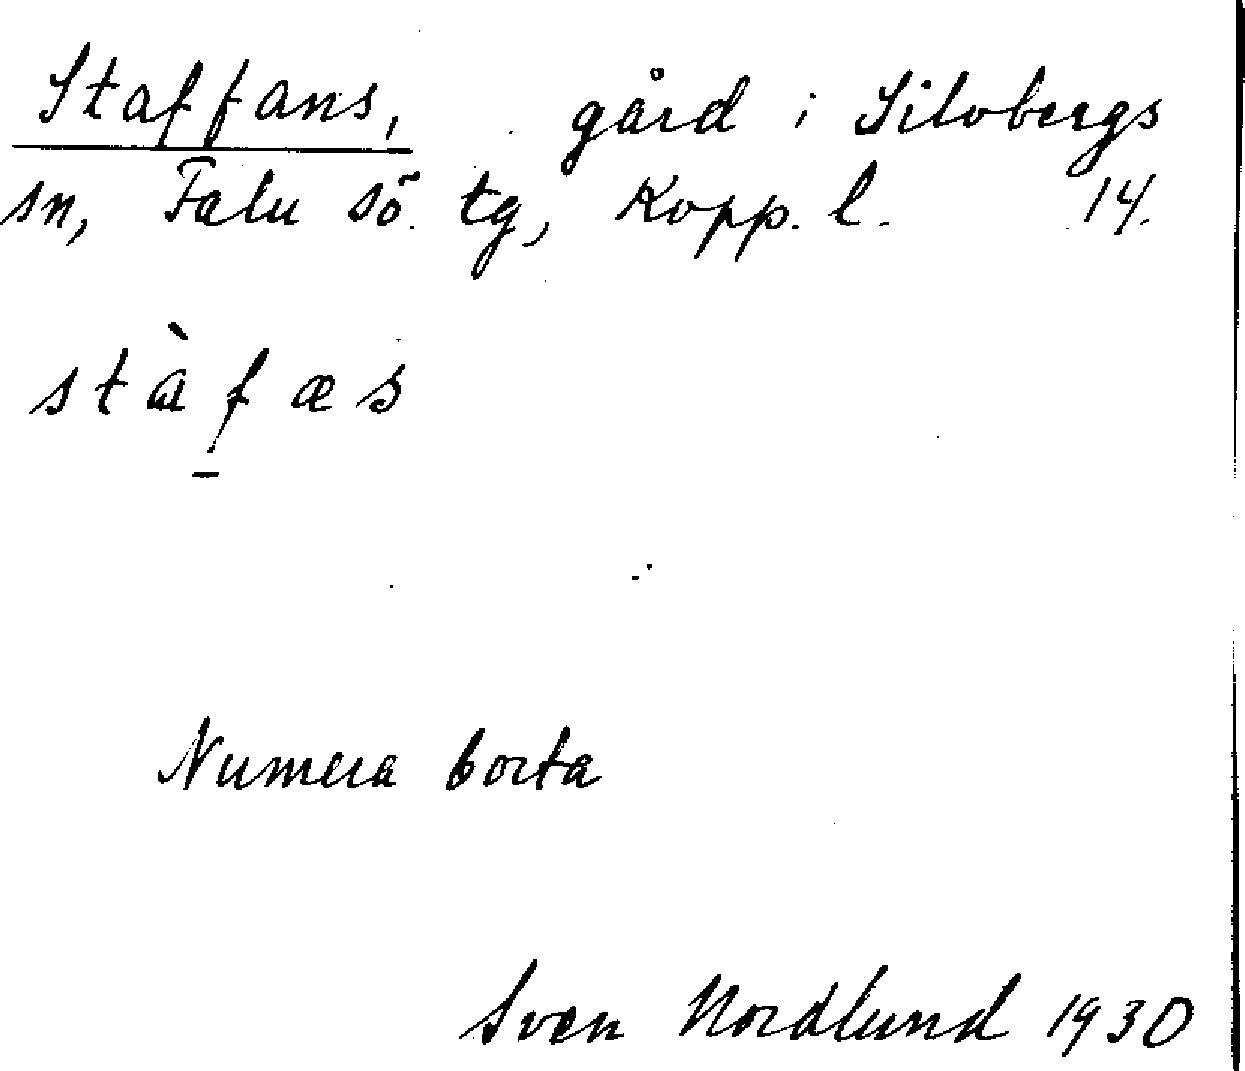 Staffans, gård i Silvbergs
sn, Falu sö. tg, Kopp. l. 14.
stàfæs
Numera borta
Sven Nordlund 1930